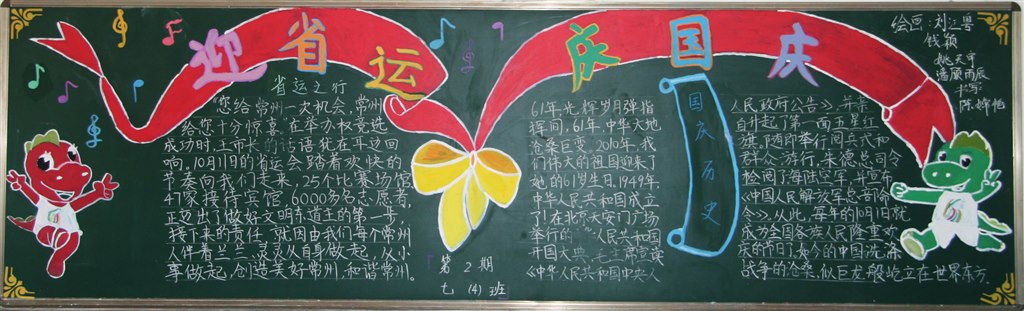 迎省运
庆国庆
省运之行
"您给常州一次机会,常州
给您十分惊喜。在举办权竞选
成功时,王市长的话语犹在耳边回
响,10月11日的省运会踏着欢快的
节奏向我们走来,25个比赛场馆
47家接待宾馆,6000万名志愿者,
正迈出了做好文明东道主的第一步,
接下来的责任,就因由我们每个常州
人伴着兰兰、灵灵从自身做起,从小
事做起,创造美好常州,和谐常州。
第2期
七(4)班
61年,光辉岁月弹指
挥间,61年,中华大地
沧桑巨变。2010年,我
们伟大的祖国迎来了
她的61岁生日。1949年,
中华人民共和国成立
了!在北京天安门广场
举行的"人民共和国
开国大典,毛主席宣读
《中华人民共和国中央人
国庆历史
人民政府公告》,并亲
自升起了第一面五星红
旗,随即举行阅兵式和
群众游行,朱德总司令
检阅了海陆空军,并宣布
《中国人民解放军总部命
令》。从此,每年的10月1日就
成为全国各族人民隆重欢
庆的节日了,如今的中国,洗涤
战争的沧桑,似巨龙般屹立在世界东方
绘画:刘江
钱颖
姚天宇
潘顾雨辰
书写:
陈婷怡